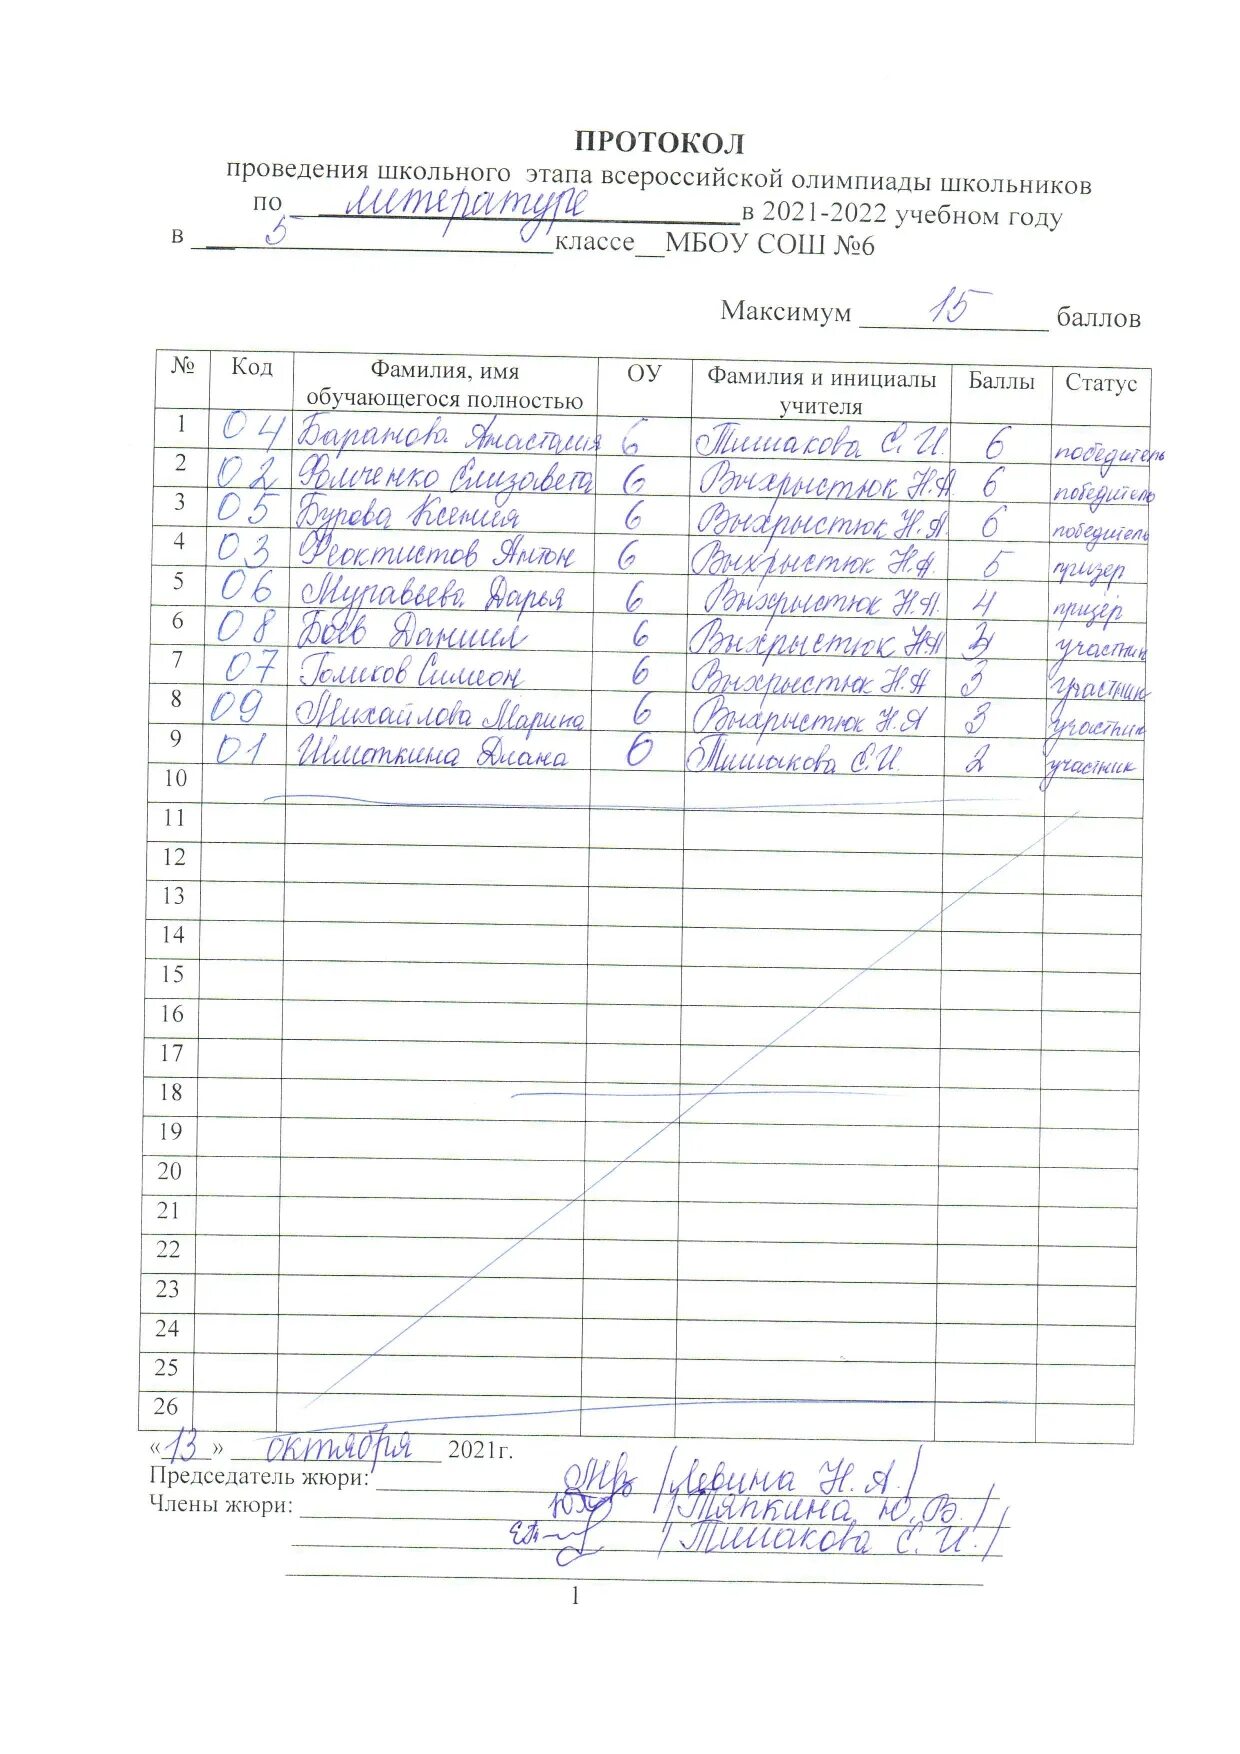 ПРОТОКОЛ
проведения школьного этапа всероссийской олимпиады школьников
по литературе в 2021-2022 учебном году
в 5 классе МБОУ СОШ №6
Максимум 15 баллов
№ Код Фамилия, имя обучающегося полностью ОУ Фамилия и инициалы учителя Баллы Статус
1 04 Баранова Анастасия 6 Тишакова Е. И. 6 победитель
2 02 Фомченко Елизавета 6 Выхрыстюк Н.А. 6 победитель
3 05 Бурова Ксения 6 Выхрыстюк Н.А. 6 победитель
4 03 Феоктистов Антон 6 Выхрыстюк Н.А. 5 призёр
5 06 Муравьева Дарья 6 Выхрыстюк Н.А. 4 призёр
6 08 Боев Даниил 6 Выхрыстюк Н.А участник
7 07 Голиков Симеон 6 Выхрыстюк Н.А 3 участник
8 09 Михайлова Марина 6 Выхрыстюк Н.А 3 участник
9 01 Шмоткина Диана 6 Тишакова Е.И. 2 участник
10
11
12
13
14
15
16
17
18
19
20
21
22
23
24
25
26
«13» октября 2021г.
Председатель жюри: /Левина Н. А./
Члены жюри: /Тяпкина Ю. В./
/Тишакова Е. И./
1